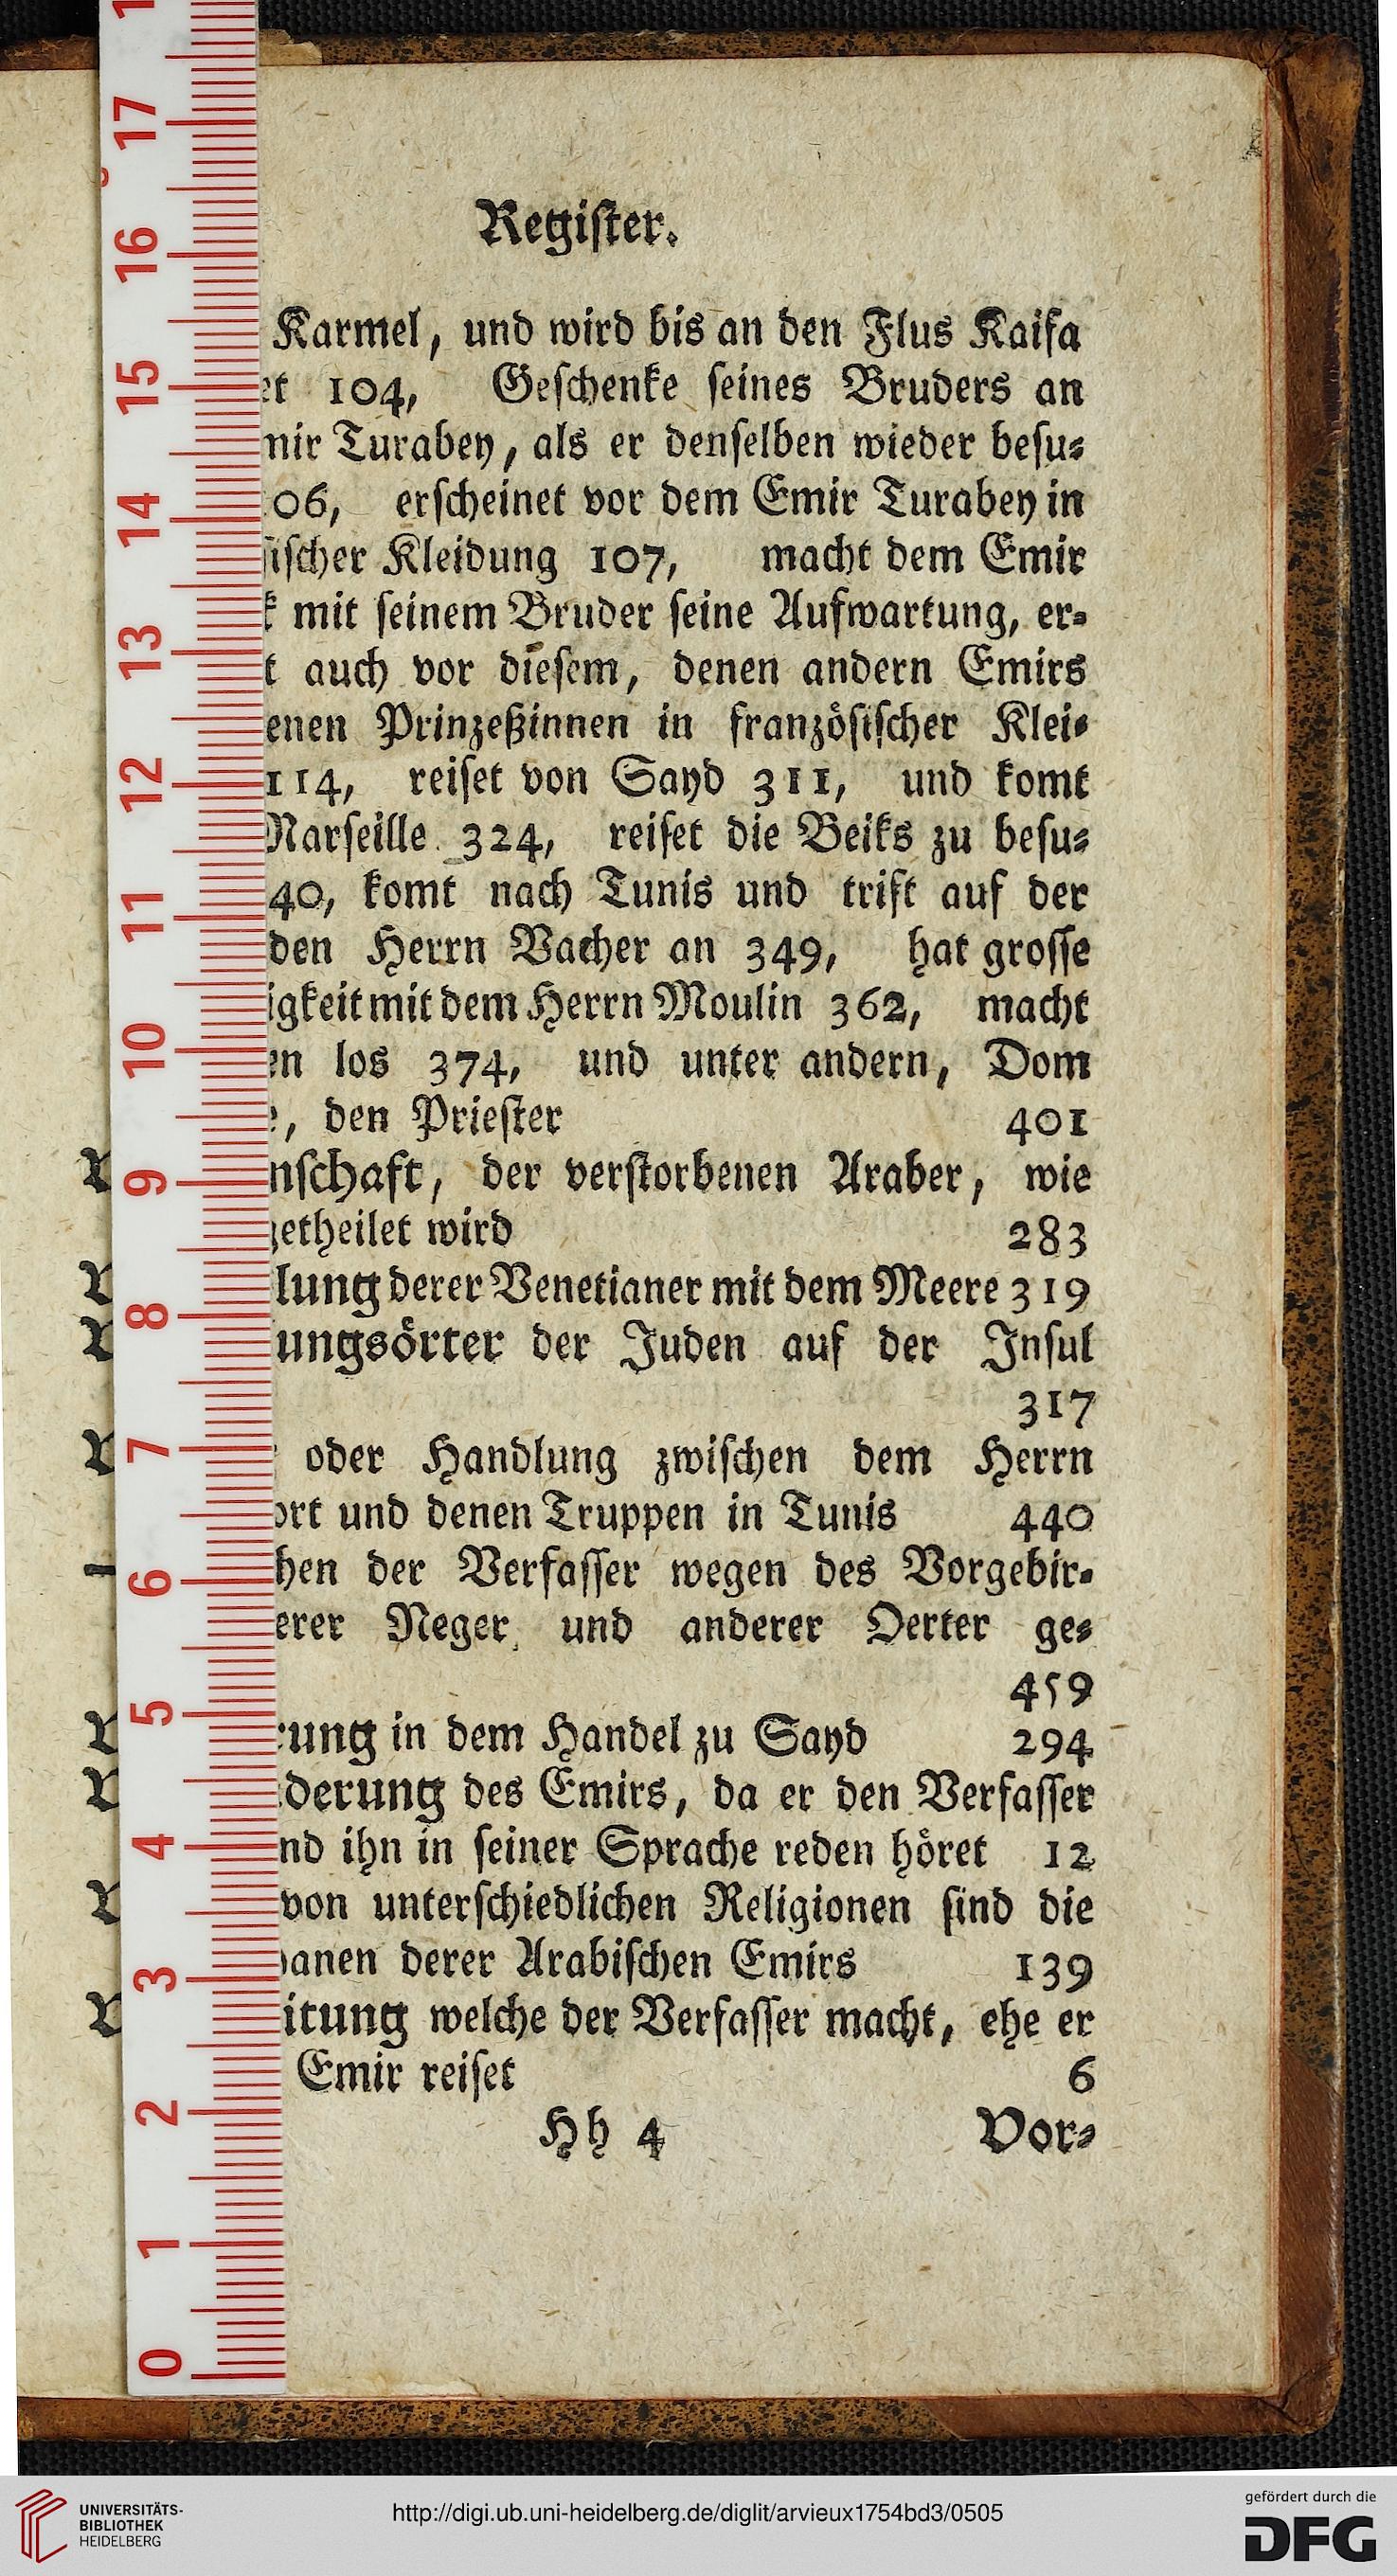 Register.
Karmel, und wird bis an den Flus Kaifa
104, Geschenke seines Bruders an
Turabey, als er denselben wieder besu-
erscheinet vor dem Emir Turabey in
Kleidung 107, macht dem Emir
mit seinem Bruder seine Aufwartung, er-
auch vor diesem, denen andern Emirs
Prinzeßinnen in französischer Klei-
114, reiset von Sayd 311, und komt
324, reiset die Beiks zu besu-
komt nach Tunis und trift auf der
den Herrn Vacher an 349, hat grosse
mit dem Herrn Moulin 362, macht
los 374, und unter andern, Dom
, den Priester 401
der verstorbenen Araber, wie
wird 283
derer Venetianer mit dem Meere 319
der Juden auf der Insul
317
oder Handlung zwischen dem Herrn
und denen Truppen in Tunis 440
der Verfasser wegen des Vorgebir-
Neger und anderer Oerter ge-
459
in dem Handel zu Sayd 294
des Emirs, da er den Verfasser
ihn in seiner Sprache reden höret 12
von unterschiedlichen Religionen sind die
derer Arabischen Emirs 139
welche der Verfasser macht, ehe er
Emir reiset 6
Hh 4 Vor-
17
16
15
14
13
12
11
10
9
8
7
6
5
4
3
2
1
0
UNIVERSITÄTS-
BIBLIOTHEK
HEIDELBERG
http://digi.ub.uni-heidelberg.de/diglit/arvieux1754bd3/0505
gefördert durch die
DFG